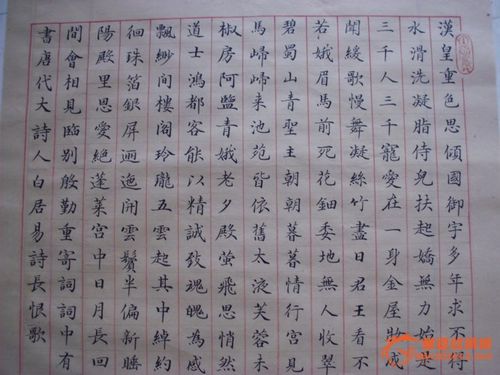 漢皇重色思傾國御宇多年求不得
水滑洗凝脂侍兒扶起嬌無力始是
三千人三千寵愛在一身金屋妝成
聞緩歌慢舞凝絲竹盡日君王看不
若娥眉馬前死花鈿委地無人收翠
碧蜀山青聖主朝朝暮暮情行宮見
馬啼啼来池苑皆依舊太液芙蓉未
椒房阿監青娥老夕殿螢飛思悄然
道士鴻都客能以精誠致魂魄為感
飄緲间樓閣玲瓏五雲起其中綽約
徊珠箔銀屏邐迤開雲鬢半偏新睡
陽殿里恩愛絕蓬萊宮中日月長回
間會相見臨别殷勤重寄詞詞中有
書唐代大詩人白居易詩長恨歌